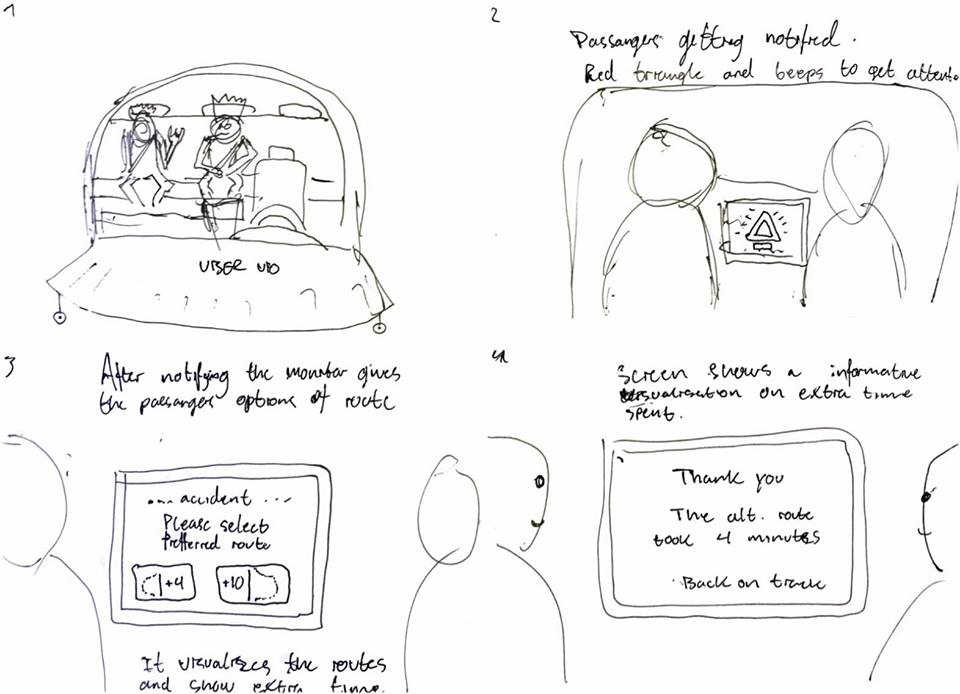 1
UBER UFO
2
Passangers getting notified.
Red triangle and beeps to get attent
3
After notifying the monitor gives
the passangers options of route
... accident ...
Please select
Preffered route
+4 +10
It visualizes the routes
and show extra time.
4
Screen shows a informative
visualisation on extra time
spent.
Thank you
The alt. route
took 4 minutes
Back on track